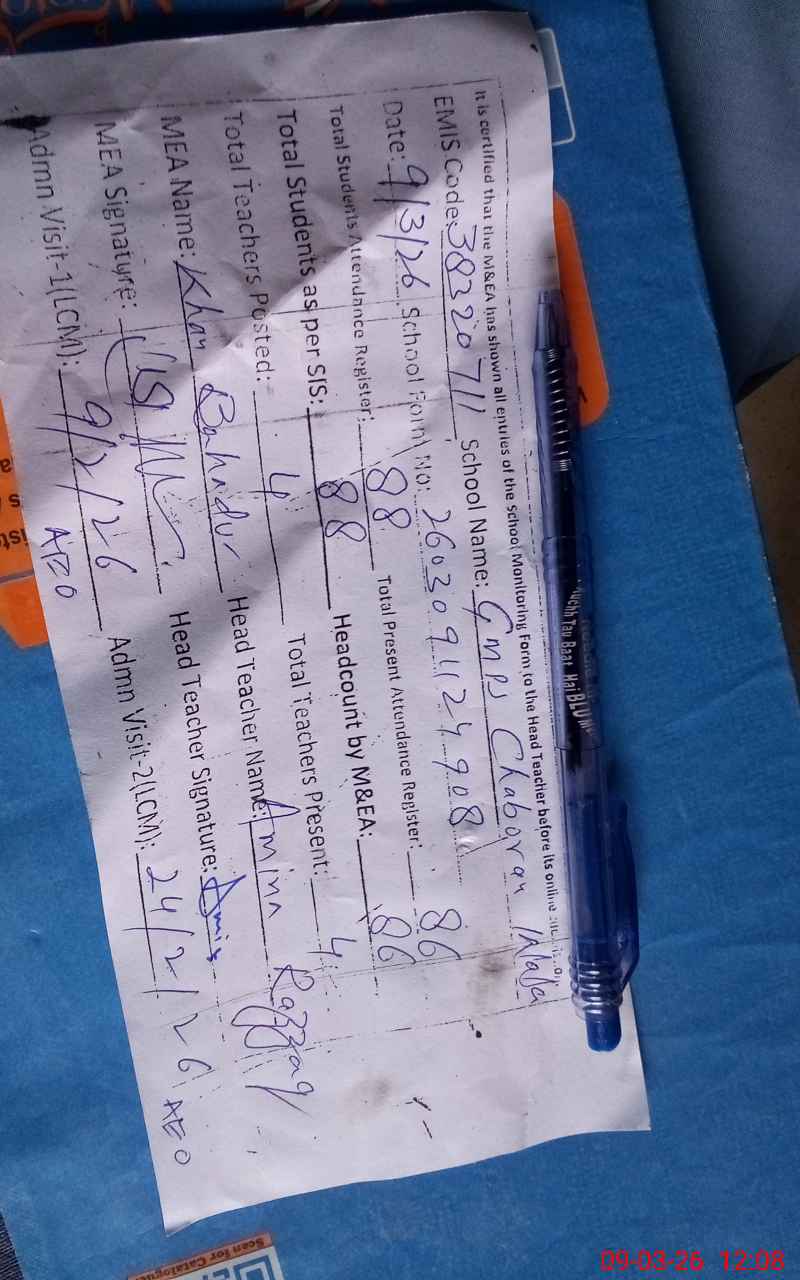 It is certified that the M&EA has shown all entries of the School Monitoring Form to the Head Teacher before its online
EMIS Code: 38320711 School Name: GMPS Chaboran Wala
Date: 9/3/26 School Form No: 2603091124908
Total Students Attendance Register: 88 Total Present Attendance Register: 86
Total Students as per SIS: 88 Headcount by M&EA: 86
Total Teachers Posted: 4 Total Teachers Present: 4
MEA Name: Khan Bahadur Head Teacher Name: Amina Razzaq
MEA Signature: Head Teacher Signature: Amina
Admn Visit-1(LCM): 9/2/26 AEO Admn Visit-2(LCM): 24/2/26 AEO
Tau Baat Hai BLUE
Scan for Catalogue
09-03-26 12:08